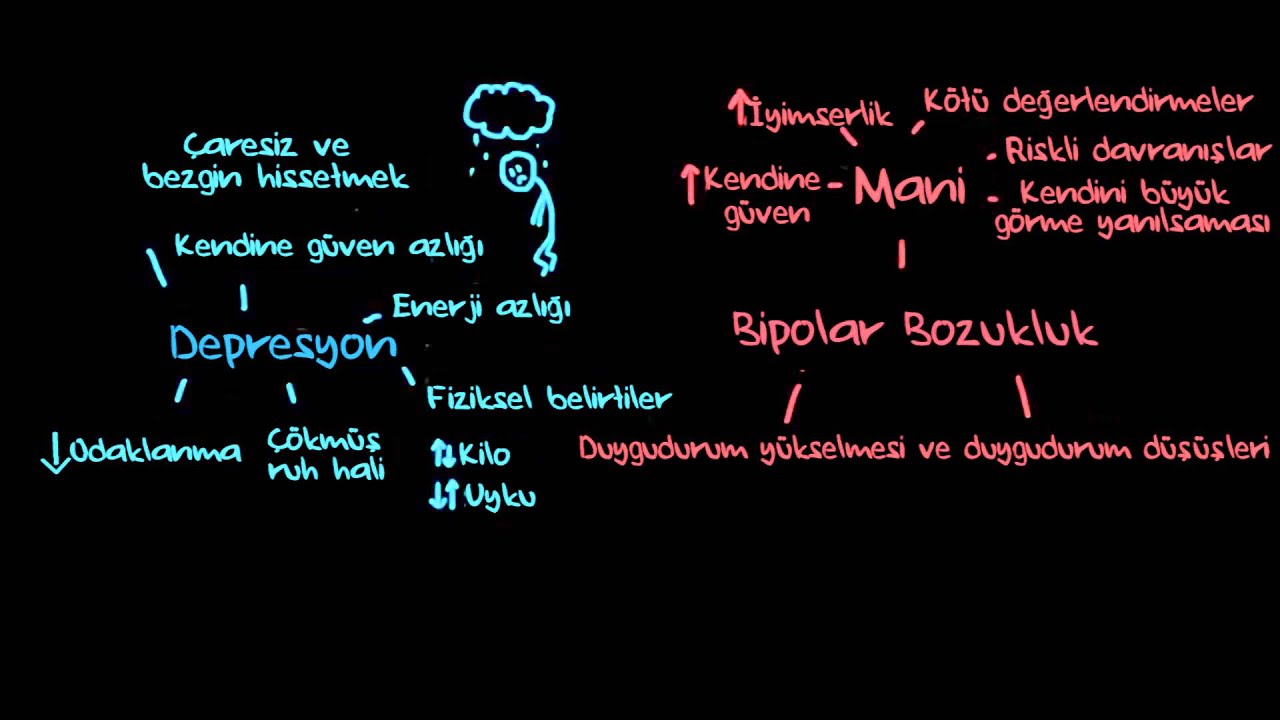 Çaresiz ve
bezgin hissetmek
Kendine güven azlığı
Enerji azlığı
Depresyon
Fiziksel belirtiler
↓Odaklanma
Çökmüş
ruh hali
↑↓Kilo
↓↑Uyku
↑İyimserlik
Kötü değerlendirmeler
Riskli davranışlar
↑Kendine
güven
Mani
Kendini büyük
görme yanılsaması
Bipolar Bozukluk
Duygudurum yükselmesi ve duygudurum düşüşleri